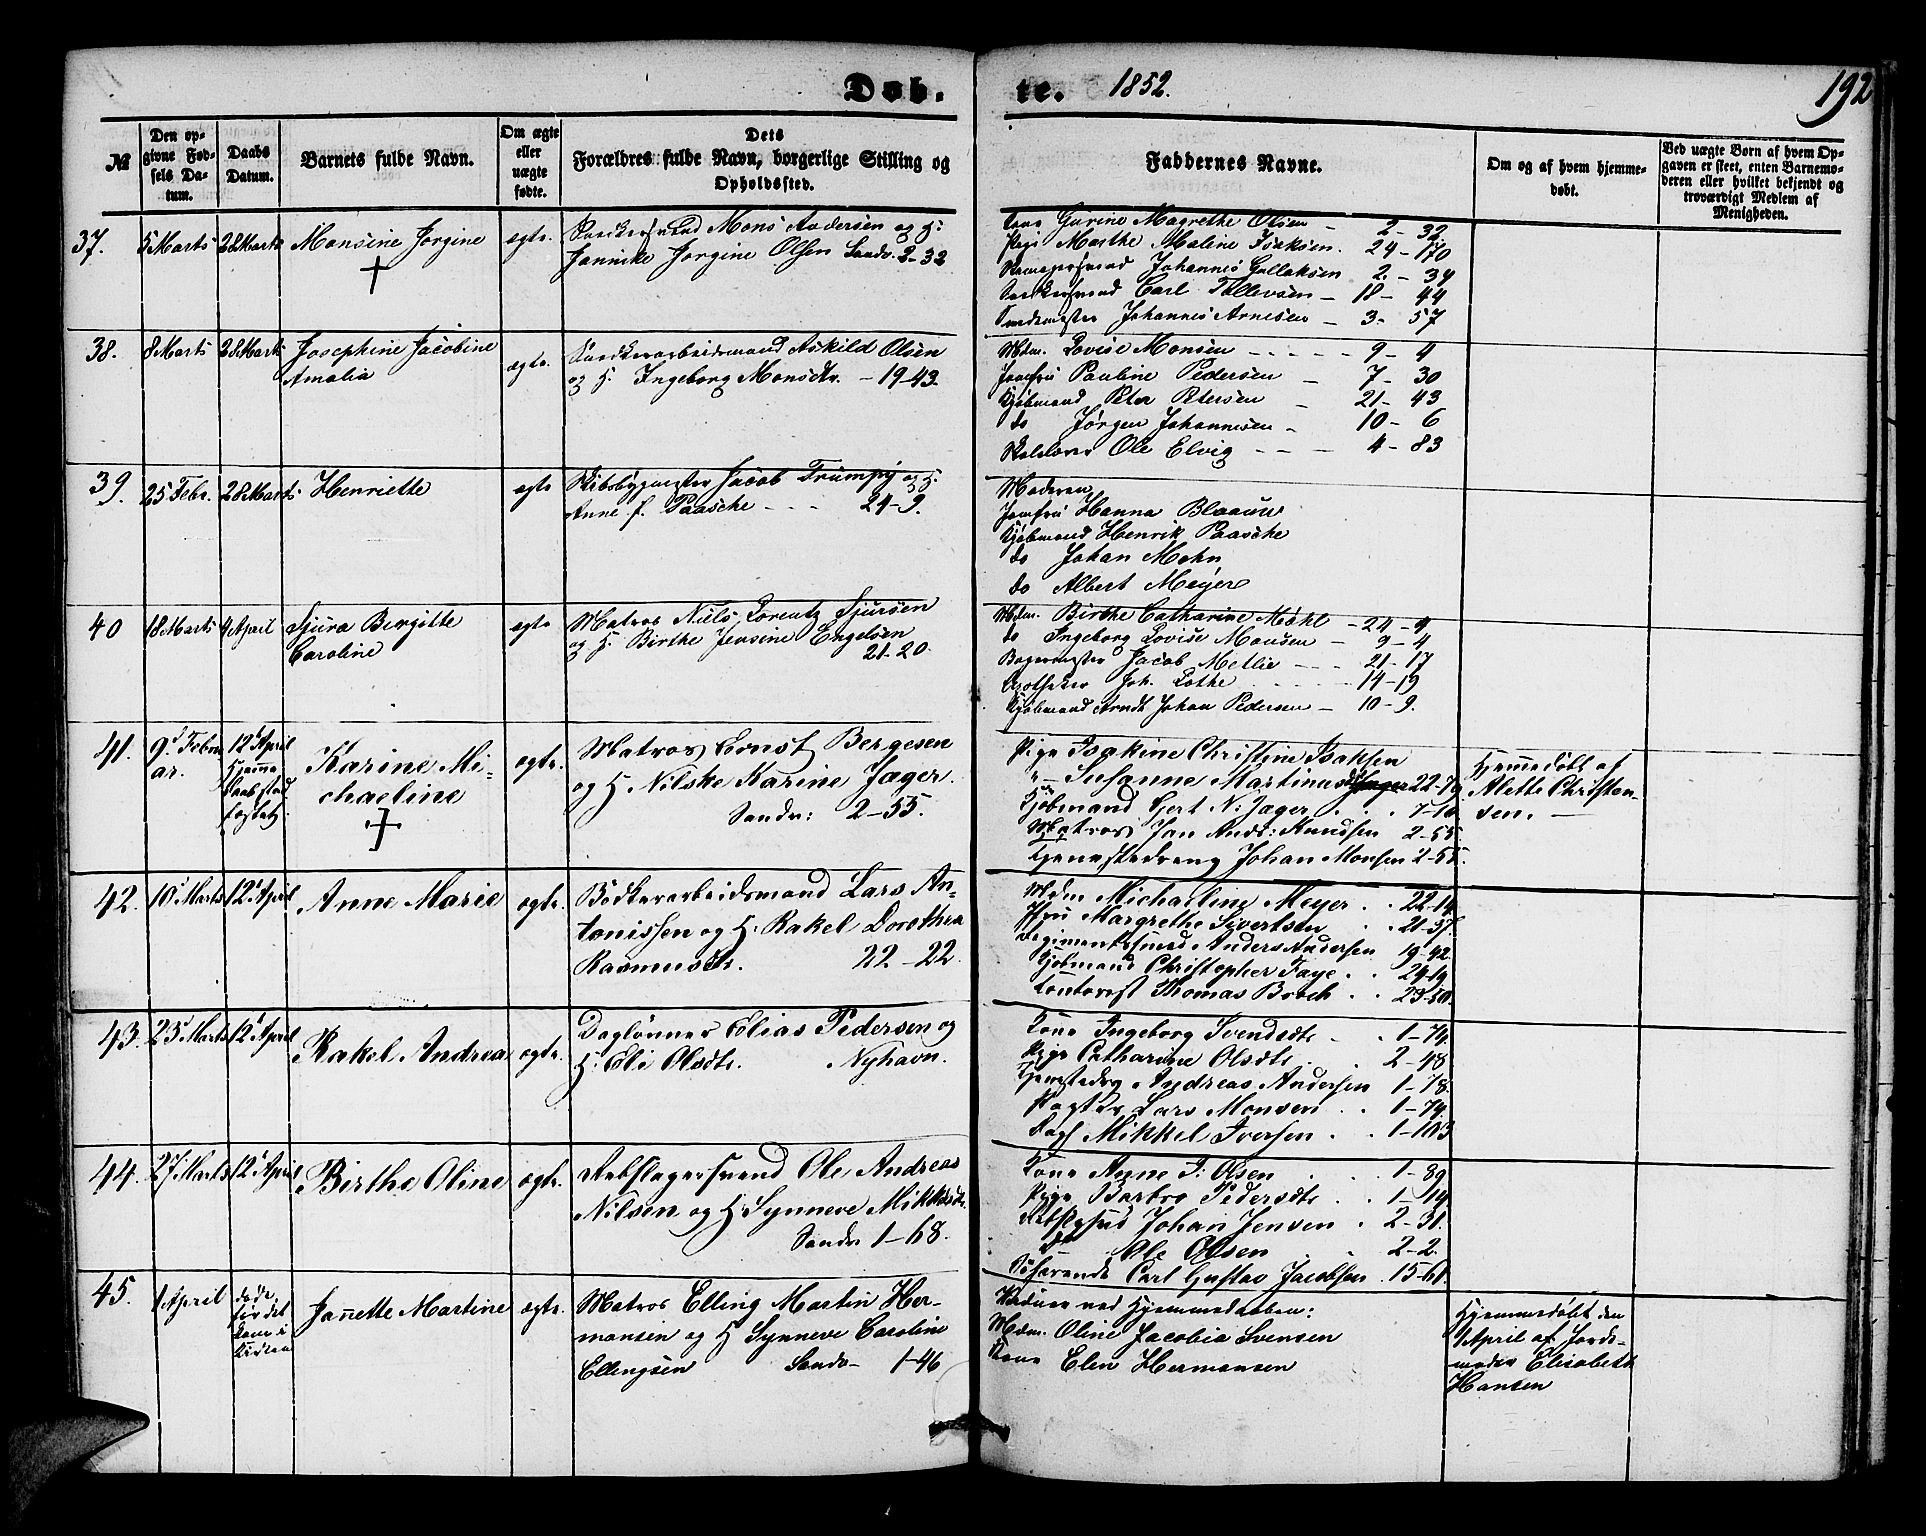 Døb. te. 1852. 192
№
Den opgivne Fødsels Datum.
Daabs Datum.
Barnets fulde Navn.
Om ægte eller uægte fødte.
Dets Forældres fulde Navn, borgerlige Stilling og Opholdssted.
Faddernes Navne.
Om og af hvem hjemmedøbt.
Ved uægte Børn af hvem Opgaven er skeet, enten Barnemoderen eller hvilket bekjendt og troværdigt Medlem af Menigheden.
37. 5 Marts 28 Marts Monsine Jorgine ægte. Mons Andersen og H:
Jannike Jorgine Olsen Sandv. 2-32
Kone Gurine Magrethe Olsen - 2-32
Pige Marthe Maline Isaksen. 24-170
Johannes Gullaksen 2-34
Carl Tollevsen - 18-44
Johannes Arnesen - 3-57
38. 8 Marts 28 Marts Josephine Jacobine
Amalia
ægte. Bødkerarbeidsmand Askild Olsen
og H. Ingeborg Monsdtr. - 19-43.
Mdm. Lovise Monsen - 9-4
Jomfru Pauline Pedersen - 7-30
Kjøbmand Peter Petersen - 21-43
do Jørgen Johannesen - 10-6
Ole Elvig - 4-83
39. 25 Febr. 28 Marts Henriette ægte Skibsbygmester Jacob Trumpy og H.
Anne f. Paasche - 24-9.
Moderen
Jomfru Hanna Blaauw
Kjøbmand Henrik Paasche
do Johan Mohn
do Albert Meyer
40 18 Marts 4 April Sjura Bergitte
Caroline
ægte Matros Niels Lorentz Sjursen
og H. Birthe Jensine Engelsen
21-20.
Mdm. Birthe Catharine Møhl - 24-9
do Ingeborg Lovise Monsen - 9-4
Bagermester Jacob Metlie - 21-17
Apotheker Joh. Lothe - 14-19
Kjøbmand Arndt Johan Pedersen - 10-9.
41. 9d Februar. 12t April
Hjemme
daab stad
fæstet.
Karine Mi-
chaeline
ægte. Matros Ernst Bergesen
og H. Nilske Karine Jæger.
Sandv: 2-55.
Pige Isakine Christine Isaksen
"- Susanne Martinus 22-79.
Kjøbmand Gert N: Jæger . . 7-10
Matros Jan Andr: Knudsen 2-55
Tjenestedreng Johan Monsen 2-55.
Hjemmedøbt af
Alette Christen-
sen. -
42. 10 Marts 12t April Anne Marie ægte. Bødkerarbeidsmand Lars An-
tonissen og H. Rakel Dorothea
Rasmusdtr. 22-22.
Mdm Michaeline Meyer . . 22-14
Jfru Margrethe Sivertsen . 21-37
Regimentssmed Anders Andersen 19-92
Kjøbmand Christopher Faye . . 24-19
Contorist Thomas Broch . . 23-50.
43. 25 Marts 12t April Rakel Andrea ægte. Daglønner Elias Pedersen og
H. Eli Olsdtr. Nyhavn.
Kone Ingeborg Svendsdtr . . 1-74
Pige Catharine Olsdtr . 2-48
Andreas Andersen 1-78.
Lars Monsen . . 1-74.
Dagl Mikkel Iversen . . 1-103
44. 27 Marts 12t April Birthe Oline ægte. Rebslagersvend Ole Andreas
Nilsen og H: Synneve Mikkelsdtr.
Sandv 1-68.
Kone Anne J: Olsen . . 1-89
Pige Barbro Pedersdtr . 1-19
Johan Jensen . 2-31.
do Ole Olsen . 2-2.
Søfarende Carl Gustav Jacobsen . 15-61.
45. 1 April døde
før det
kom i
Kirken
Janette Martine ægte. Matros Elling Martin Her-
mansen og H Synneve Caroline
Ellingsen Sandv- 1-46
Vidner ved Hjemmedaaben:
Mdm. Oline Jacobia Svensen
Kone Elen Hermansen
Hjemmedøbt den
1 April af Jorde-
moder Elisabeth
Hansen